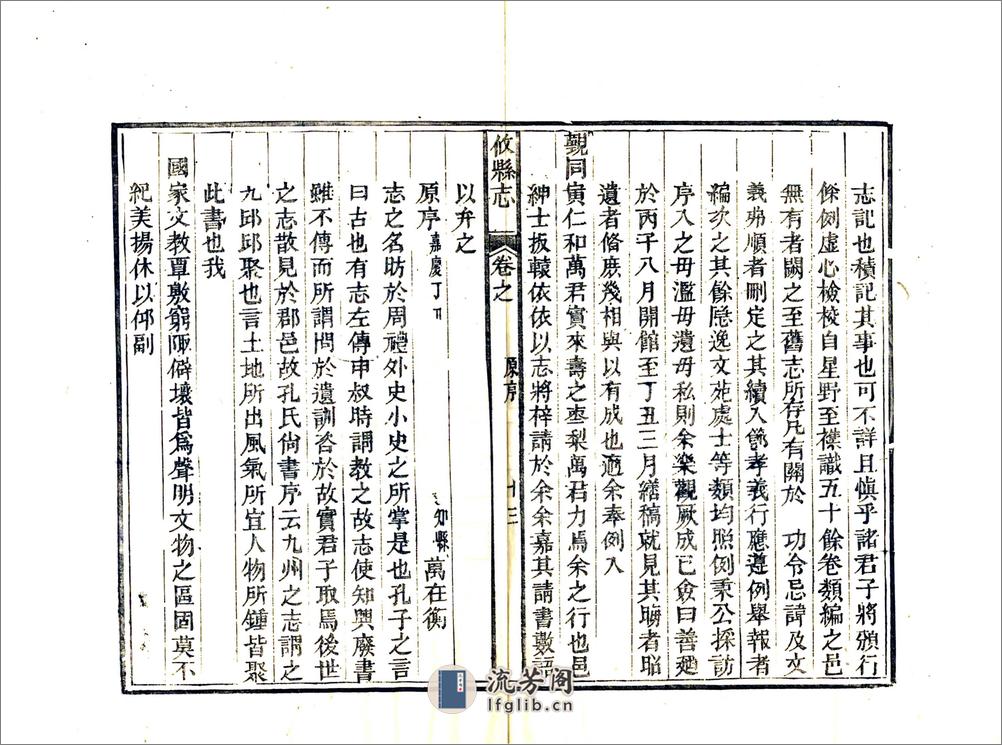 志記也積記其事也可不詳且慎乎諸君子將頒行
條例虛心檢校自星野至襍識五十餘卷類編之邑
無有者闕之至舊志所存凡有關於 功令忌諱及文
義弗順者刪定之其續入節孝義行應遵例舉報者
編次之其餘隱逸文苑處士等類均照例秉公採訪
序入之毋濫毋遺毋私則余樂觀厥成已僉曰善廼
於丙子八月開館至丁丑三月繕稿就見其晦者昭
遺者脩庶幾相與以有成也適余奉例入
覲同寅仁和萬君實來壽之棗梨萬君力焉余之行也邑
紳士扳轅依依以志將梓請於余余嘉其請書數語
攸縣志 卷之 原序 十三
以弁之
原序 嘉慶丁丑 知縣 萬在衡
志之名昉於周禮外史小史之所掌是也孔子之言
曰古也有志左傳申叔時謂教之故志使知興廢書
雖不傳而所謂問於遺訓咨於故實君子取焉後世
之志散見於郡邑故孔氏尙書序云九州之志謂之
九邱邱聚也言土地所出風氣所宜人物所鍾皆聚
此書也我
國家文教覃敷窮陬僻壤皆為聲明文物之區固莫不
紀美揚休以仰副
流芳阁
lfglib.cn